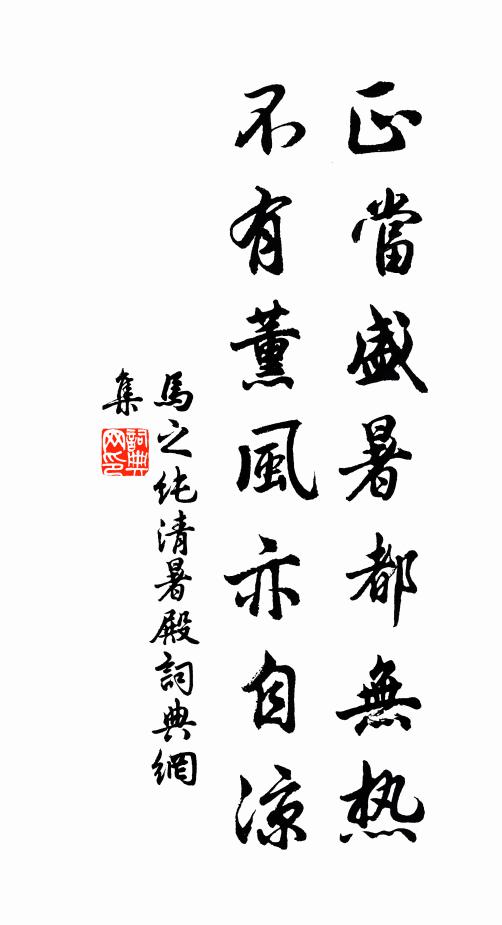 正當盛暑都無热
不有薰風亦自涼
馬之纯清暑殿詞典網
集
詞典
网印